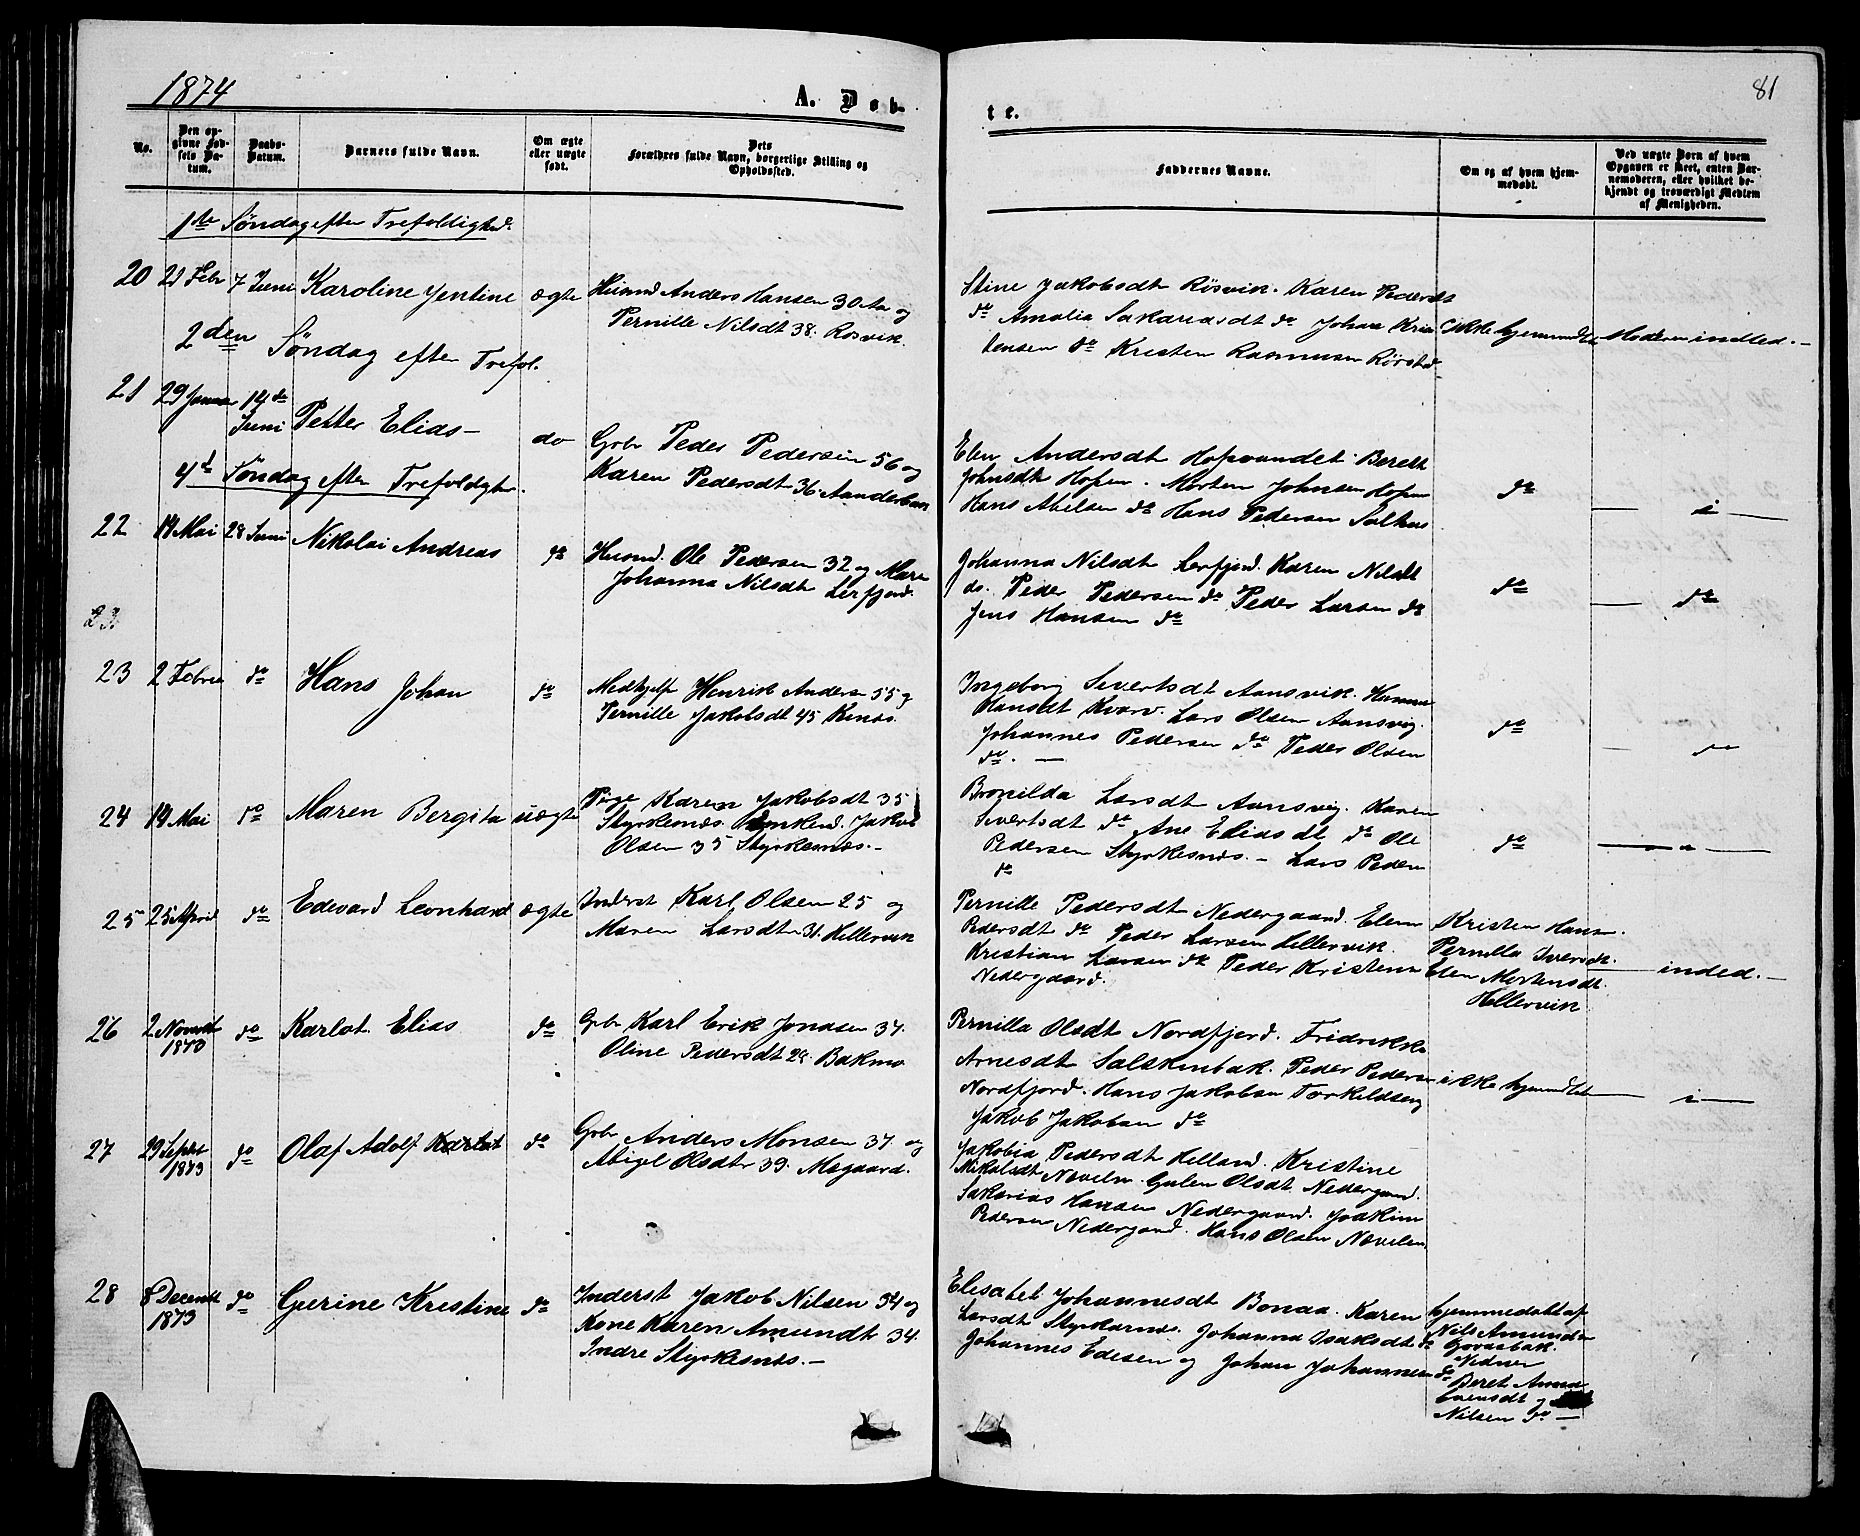 1874
A. Døb-
te.
81
No.
Den opgivne Fødsels Datum.
Daabs-Datum.
Barnets fulde Navn.
Om ægte eller uægte født.
Dets Forældres fulde Navn, borgerlige Stilling og Opholdssted.
Faddernes Navne.
Om og af hvem hjemmedøbt.
Ved uægte Børn af hvem Opgaven er skeet, enten Barnemoderen, eller hvilket bekjendt og troværdigt Medlem af Menigheden.
1ste Søndag efter Trefoldighed.
20 21 Febr 7 Juni Karoline Jentine ægte Husmd Anders Hansen 30 Aar og
Pernille Nilsdt 38. Røsvik
Stine Jakobsdt Røsvik. Karen Pedersdt
do Amalia Sakariasdt do Johan Kris
tensen do Kristen Rasmusen Rørstad
ikke hjemmedøbt Moderen indled.-
2den Søndag efter Trefol.
21 29 Januar 14de Juni Petter Elias- do Grbr Peder Pedersen 56 og
Karen Pedersdt 36
Elen Andersdt Hopvandet Berett
Johnsdt Hopen. Morten Johnsen Hopen
Hans Abelsen do Hans Pedersen Salhus
do
4d Søndag efter Trefoldigh.
22 14 Mai 28 Juni Nikolai Andreas do Husmd. Ole Pedersen 32 og Maren
Johanna Nilsdt Lerfjord.
Johanna Nilsdt Lerfjord. Karen Nilsdt
do. Peder Pedersen do Peder Larsen do
Jens Hansen do
do do
23.
23 2 Febru do Hans Johan do Medhjelp Henrik Anders 55 og
Pernille Jakobsdt 45
Ingeborg Sivertsdt Aansvik.
Hansdt Kvarv. Lars Olsen Aansvig.
Johannes Pedersen do Peder Olsen
do. -
do do
24 14 Mai do Maren Bergita uægte Pige Karen Jakobsdt 35
Styrkesnæs. Enkemd. Jakob
Olsen 35 Styrkesnæs.-
Bronilda Larsdt Aansvig. Karen
Sivertsdt do Ane Eliasdt do Ole
Pedersen Styrkesnæs. - Lars Peders
do
do
25 25 April do Edevard Leonhard ægte Inderst Karl Olsen 25 og
Maren Larsdtr 31. Hellervik
Pernille Pedersdt Nedergaard. Elen
Pedersdt do Peder Larsen Hellervik
Kristian Larsen do Peder Kristensn
Nedergaard.
Kristen Hans
Pernilla Iversdt.
Elen Mortensdt.
Hellervik
indled.-
26 2 Novembr 1873 do Karlot Elias do Grbr Karl Erik Jonasen 37.
Oline Pedersdt 29 Bakmo
Pernilla Olsdt Nordfjord. Fridrikke
Arnesdt Salskinbak. Peder Pedersen
Nordfjord. Hans Jakobsen Torkildseng
Jakob Jakobsen do
ikke hjemmedøbt
27 29 Septbr 1873 do Olaf Adolf Karlot do Grbr Anders Monsen 37 og
Abigel Olsdtr 39. Møgaard.
Jakobia Pedersdt Helland. Kristine
Mikalsdt Nævelsn. Gulen Olsdt Nedergaard.
Sakarias Hansen Nedergaard. Joakim
Pedersen Nedergaard. Hans Olsen Nævelsn
28 8 Decembr 1873 do Gjerine Kristine do Inderst Jakob Nilsen 34 og
Kone Karen Amundt 34.
Indre Styrkesnæs.-
Elisabet Johannesdt Bonaa. Karen
Larsdt Styrkesnæs. Johanna Isaksdt do
Johannes Edisen og Johan Johannesen do
hjemmedøbt af
Nils Amundsn
Vidner
Beret Amund
Evensdt og
Nilsen do -